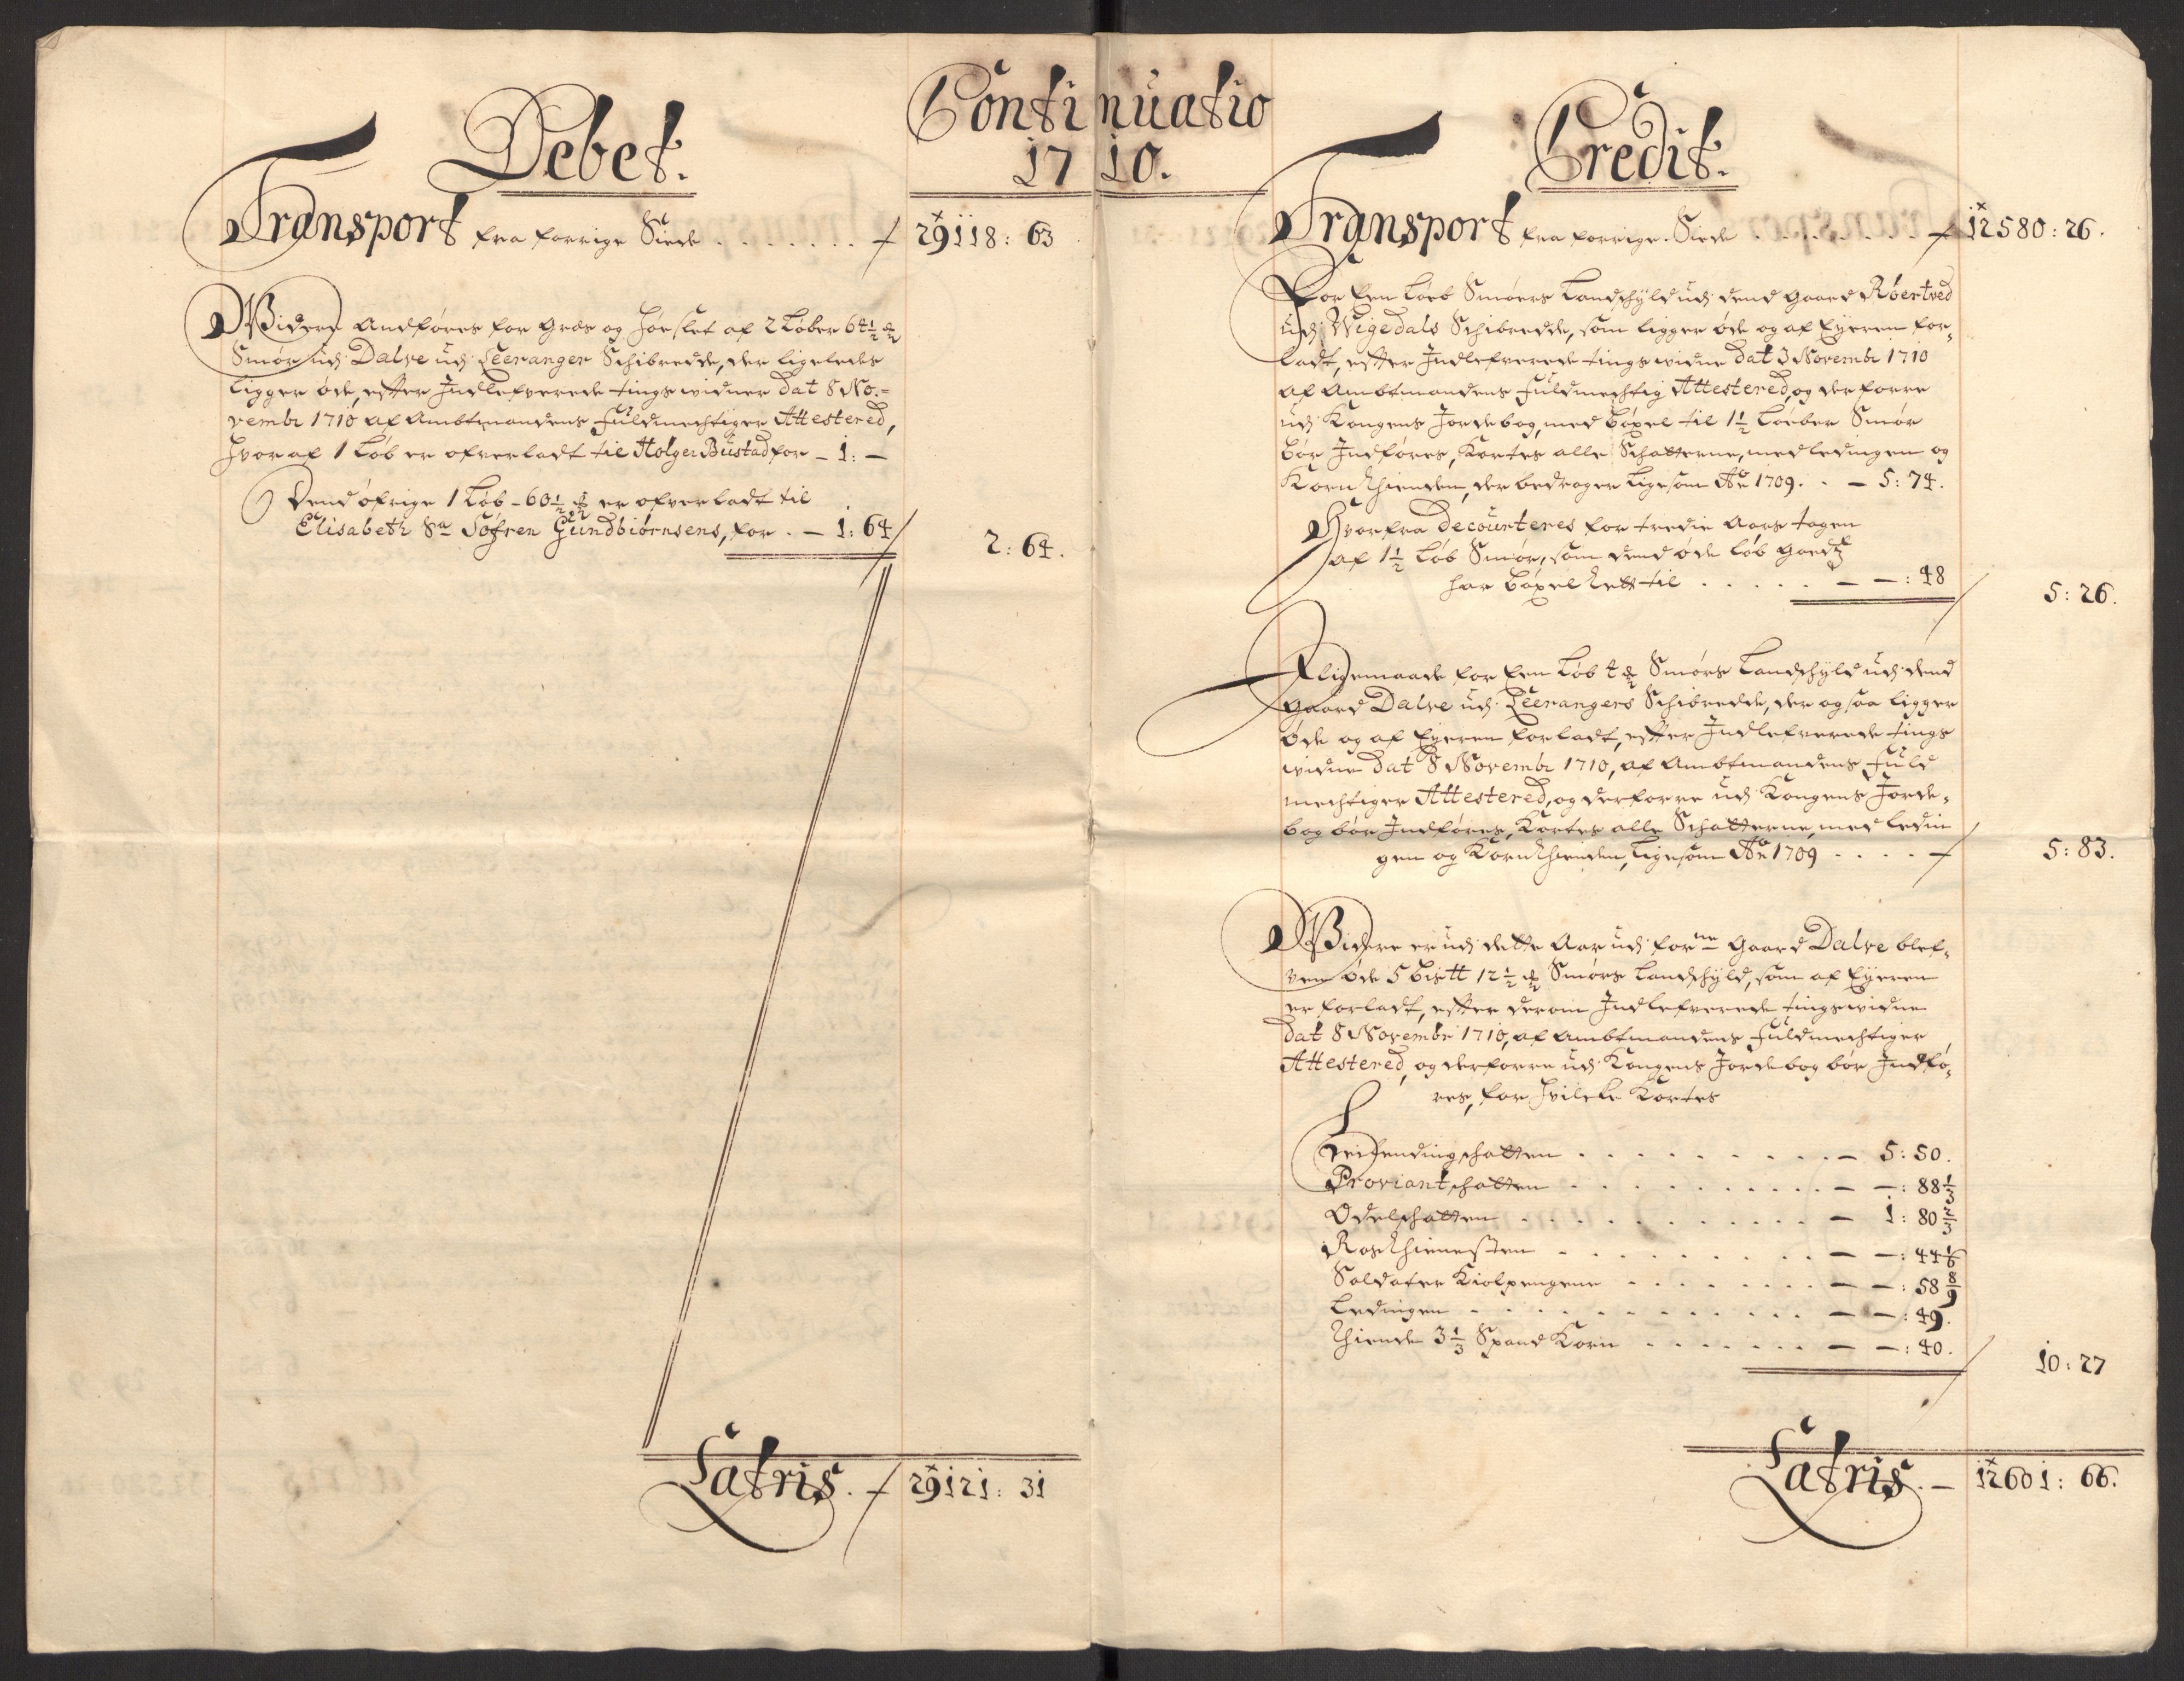 Continuatio
1710.
Debet.
Transport fra forrige Siede . . . . . . . 29118: 63
Widere Andføres for Græs og Høeslet af 2 Løber 64½ ℔
Smør udj Dalve udj Leeranger Schibredde, der ligeledes
ligger øde, efter Indlefverede tings widner dat 8 No-
vembr 1710 af Ambtmandens fuldmechtiger Attestered,
hvor af 1 Løb er ofverladt til Holger Bustad for - 1: -
Dend øfrige 1 Løb - 60½ ℔ er ofverladt til
Elisabeth Sa Sofren Gundbiørnsens, for . - 1: 64
2: 64.
Latris. 29121: 31
Credit.
Transport fra forrige Siede . . . . . . . 12580: 26.
For Een Løeb Smørs Landschyld udj dend gaard Røertved
udj Wigedals Schibredde, som ligger øde og af Eyeren for-
ladt, efter Indlefverede tings widne dat 3 Novembr 1710
af Ambtmandens fuldmechtig Attestered, og der forre
udj Kongens Jordebog, med bøxel til 1½ Løeber Smør
bør Indføres, Kortes alle Schatterne, med ledingen og
Korn thienden, der bedrager ligesom Ao 1709. . - 5: 74.
Hvor fra Decourteres for tredie Aars tagen
af 1½ Løb Smør, som dend øde løb goedtz
har bøxel Rett til . . . . . - - : 48
5: 26.
Iligemaade for Een Løb 4 ℔ Smørs Landschyld udj dend
gaard Dalve udj Leerangers Schibredde, der og saa ligger
øde og af Eyeren forladt, efter Indlefverede tings
widne dat 8 Novembr 1710, af Ambtmandens fuld
mechtiger Attestered, og derforre udj Kongens Jorde-
bog bør Indføres, Kortes alle Schatterne, med ledin
gen og Korn thienden, ligesom Ao 1709 . . . .
5: 83.
Widere er udj dette Aar udj forne gaard Dalve blef-
ven øde 5 bistt 12½ ℔ Smørs Landschyld, som af Eyeren
er forladt, efter derom Indlefverede tingswidne
dat 8 Novembr 1710, af Ambtmandens fuldmechtiger
Attestered, og derforre udj Kongens Jordebog bør Indfø-
res, for hvilcke Kortes
Leilendingschatten . . . . . . . . - 5: 50.
Proviantschatten . . . . . . . . - - : 88⅓
Odelschatten . . . . . . . . - 1: 80⅔
Rosthienesten . . . . . . . . - - : 44⅙
Soldater Kiolpengene . . . . . . - - : 58 8/9
Ledingen . . . . . . . . - - : 49.
Thiende 3⅓ Spand Korn . . . . . . - - : 40.
10: 27
Latris. - 12601: 66.